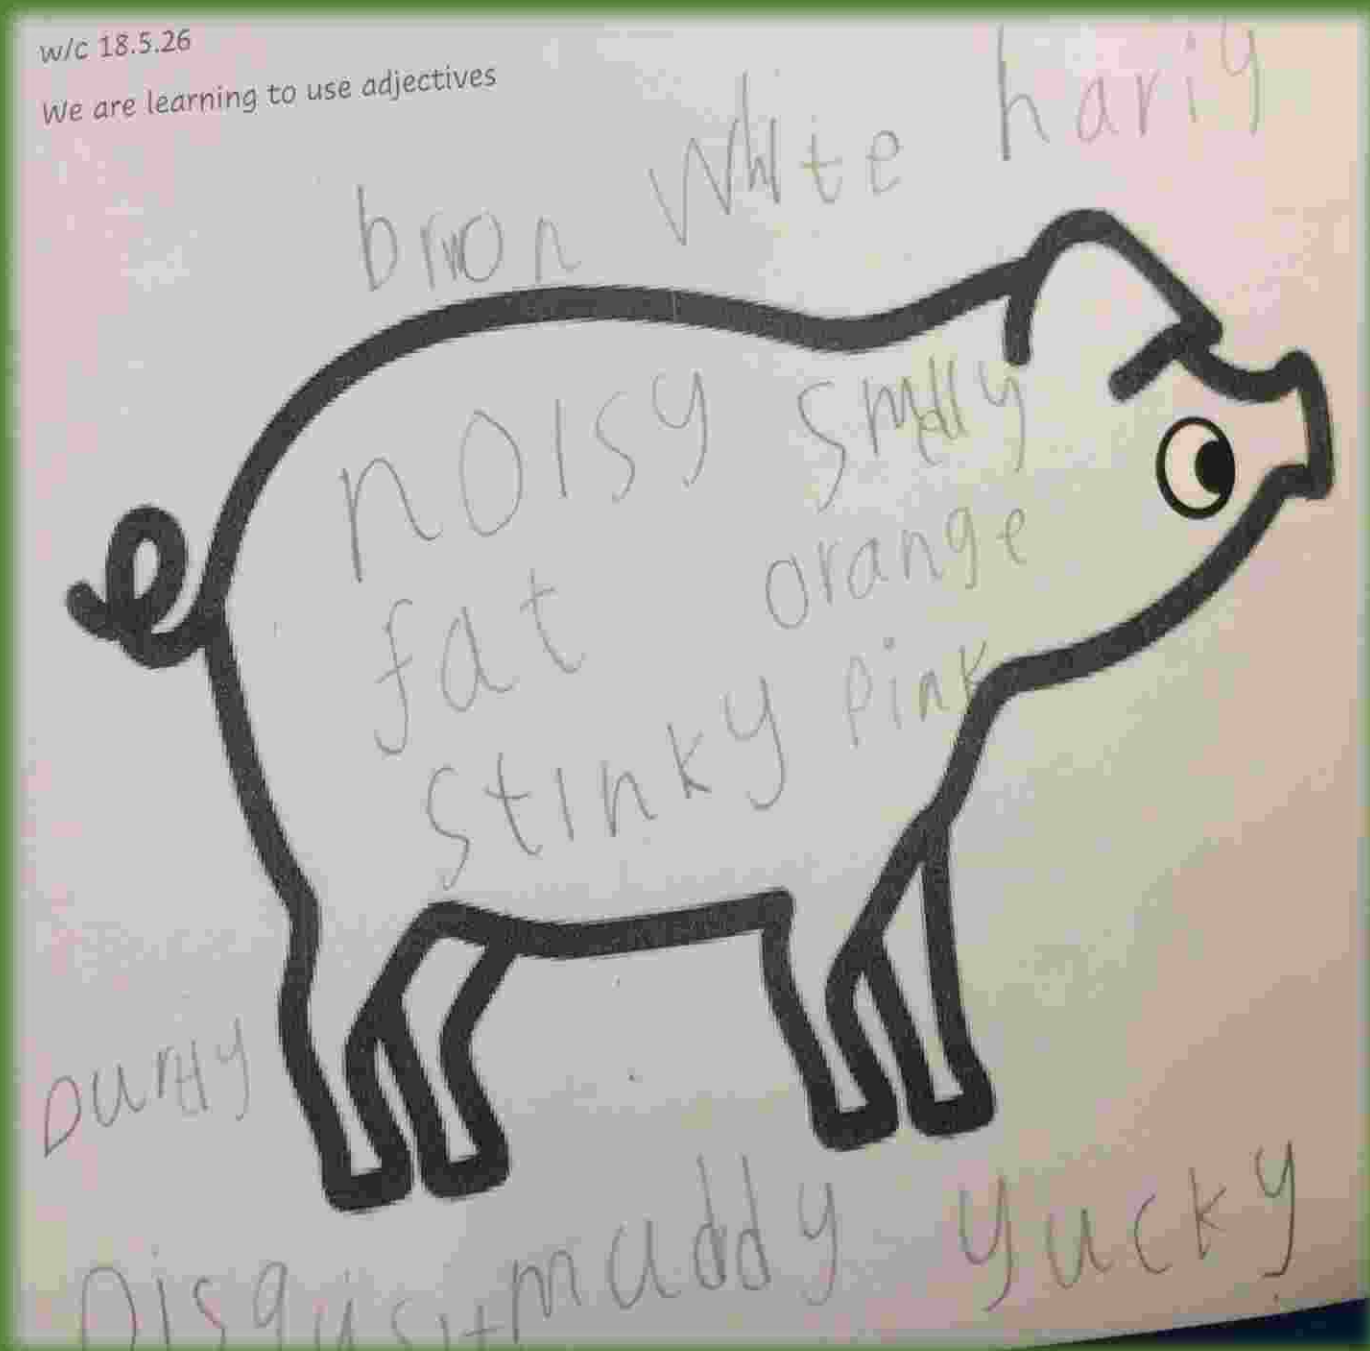 w/c 18.5.26
We are learning to use adjectives
bron white hariy
noisy smelly
fat orange
stinky pink
Durtty
muddy yucky